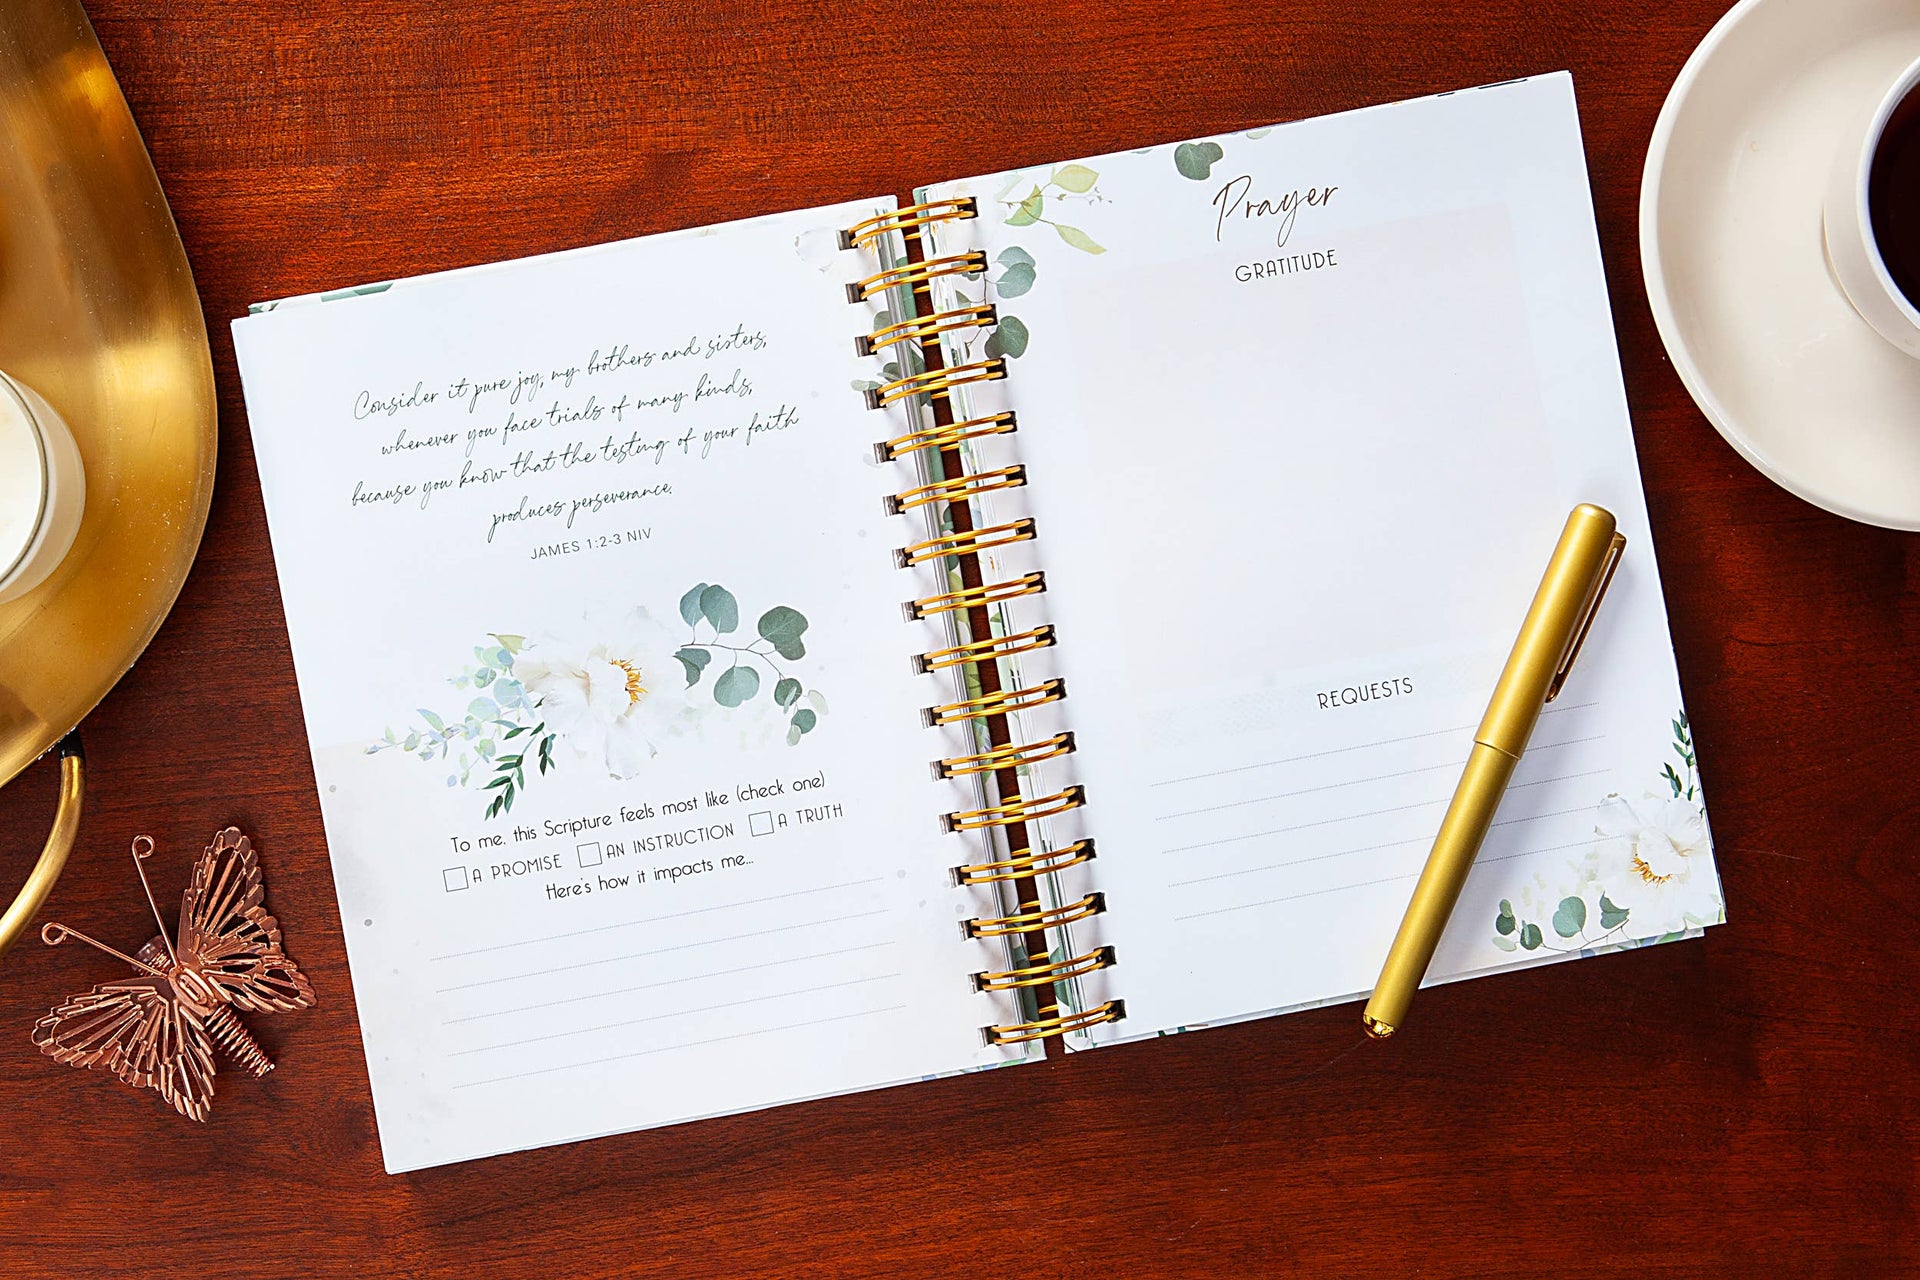 Consider it pure joy, my brothers and sisters,
whenever you face trials of many kinds,
because you know that the testing of your faith
produces perseverance.
JAMES 1:2-3 NIV
To me, this Scripture feels most like (check one)
A PROMISE AN INSTRUCTION A TRUTH
Here's how it impacts me...
Prayer
GRATITUDE
REQUESTS